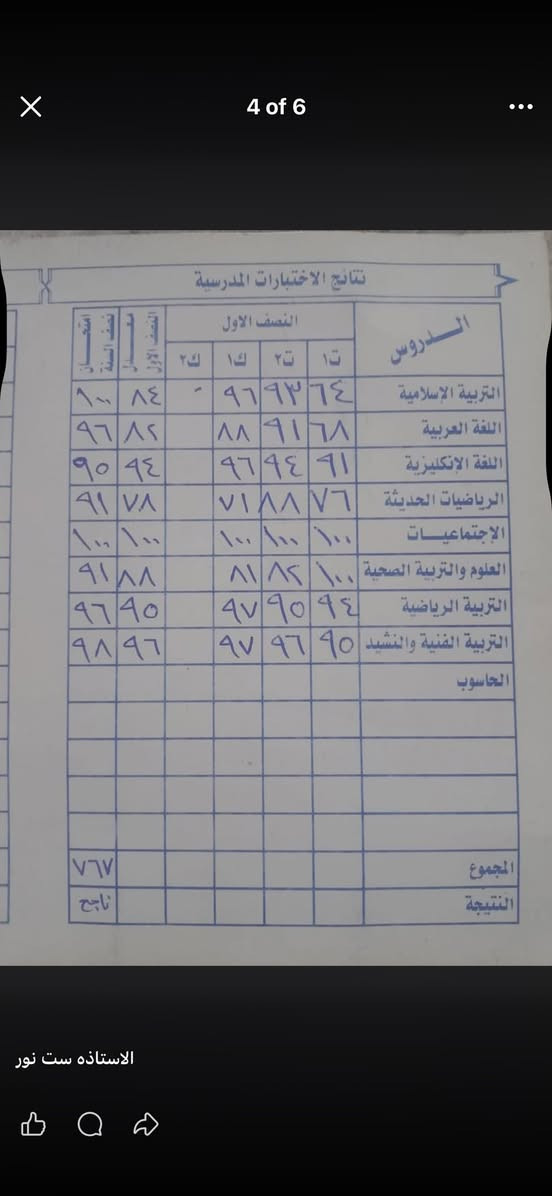 4 of 6
نتائج الاختبارات المدرسية
الـــدروس النصف الاول معـــدل النصف الاول امتحـــان نصف السنة
ت١ ت٢ ك١ ك٢
التربية الإسلامية ٦٤ ٩٣ ٩٦ - ٨٤ ١٠٠
اللغة العربية ٦٨ ٩١ ٨٨ ٨٢ ٩٦
اللغة الإنكليزية ٩١ ٩٤ ٩٦ ٩٤ ٩٠
الرياضيات الحديثة ٧٦ ٨٨ ٧١ ٧٨ ٩١
الإجتماعيـــات ١٠٠ ١٠٠ ١٠٠ ١٠٠ ١٠٠
العلوم والتربية الصحية ١٠٠ ٨٢ ٨١ ٨٨ ٩١
التربية الرياضية ٩٤ ٩٥ ٩٧ ٩٥ ٩٦
التربية الفنية والنشيد ٩٥ ٩٦ ٩٧ ٩٦ ٩٨
الحاسوب
المجموع ٧٦٧
النتيجة ناجح
الاستاذه ست نور